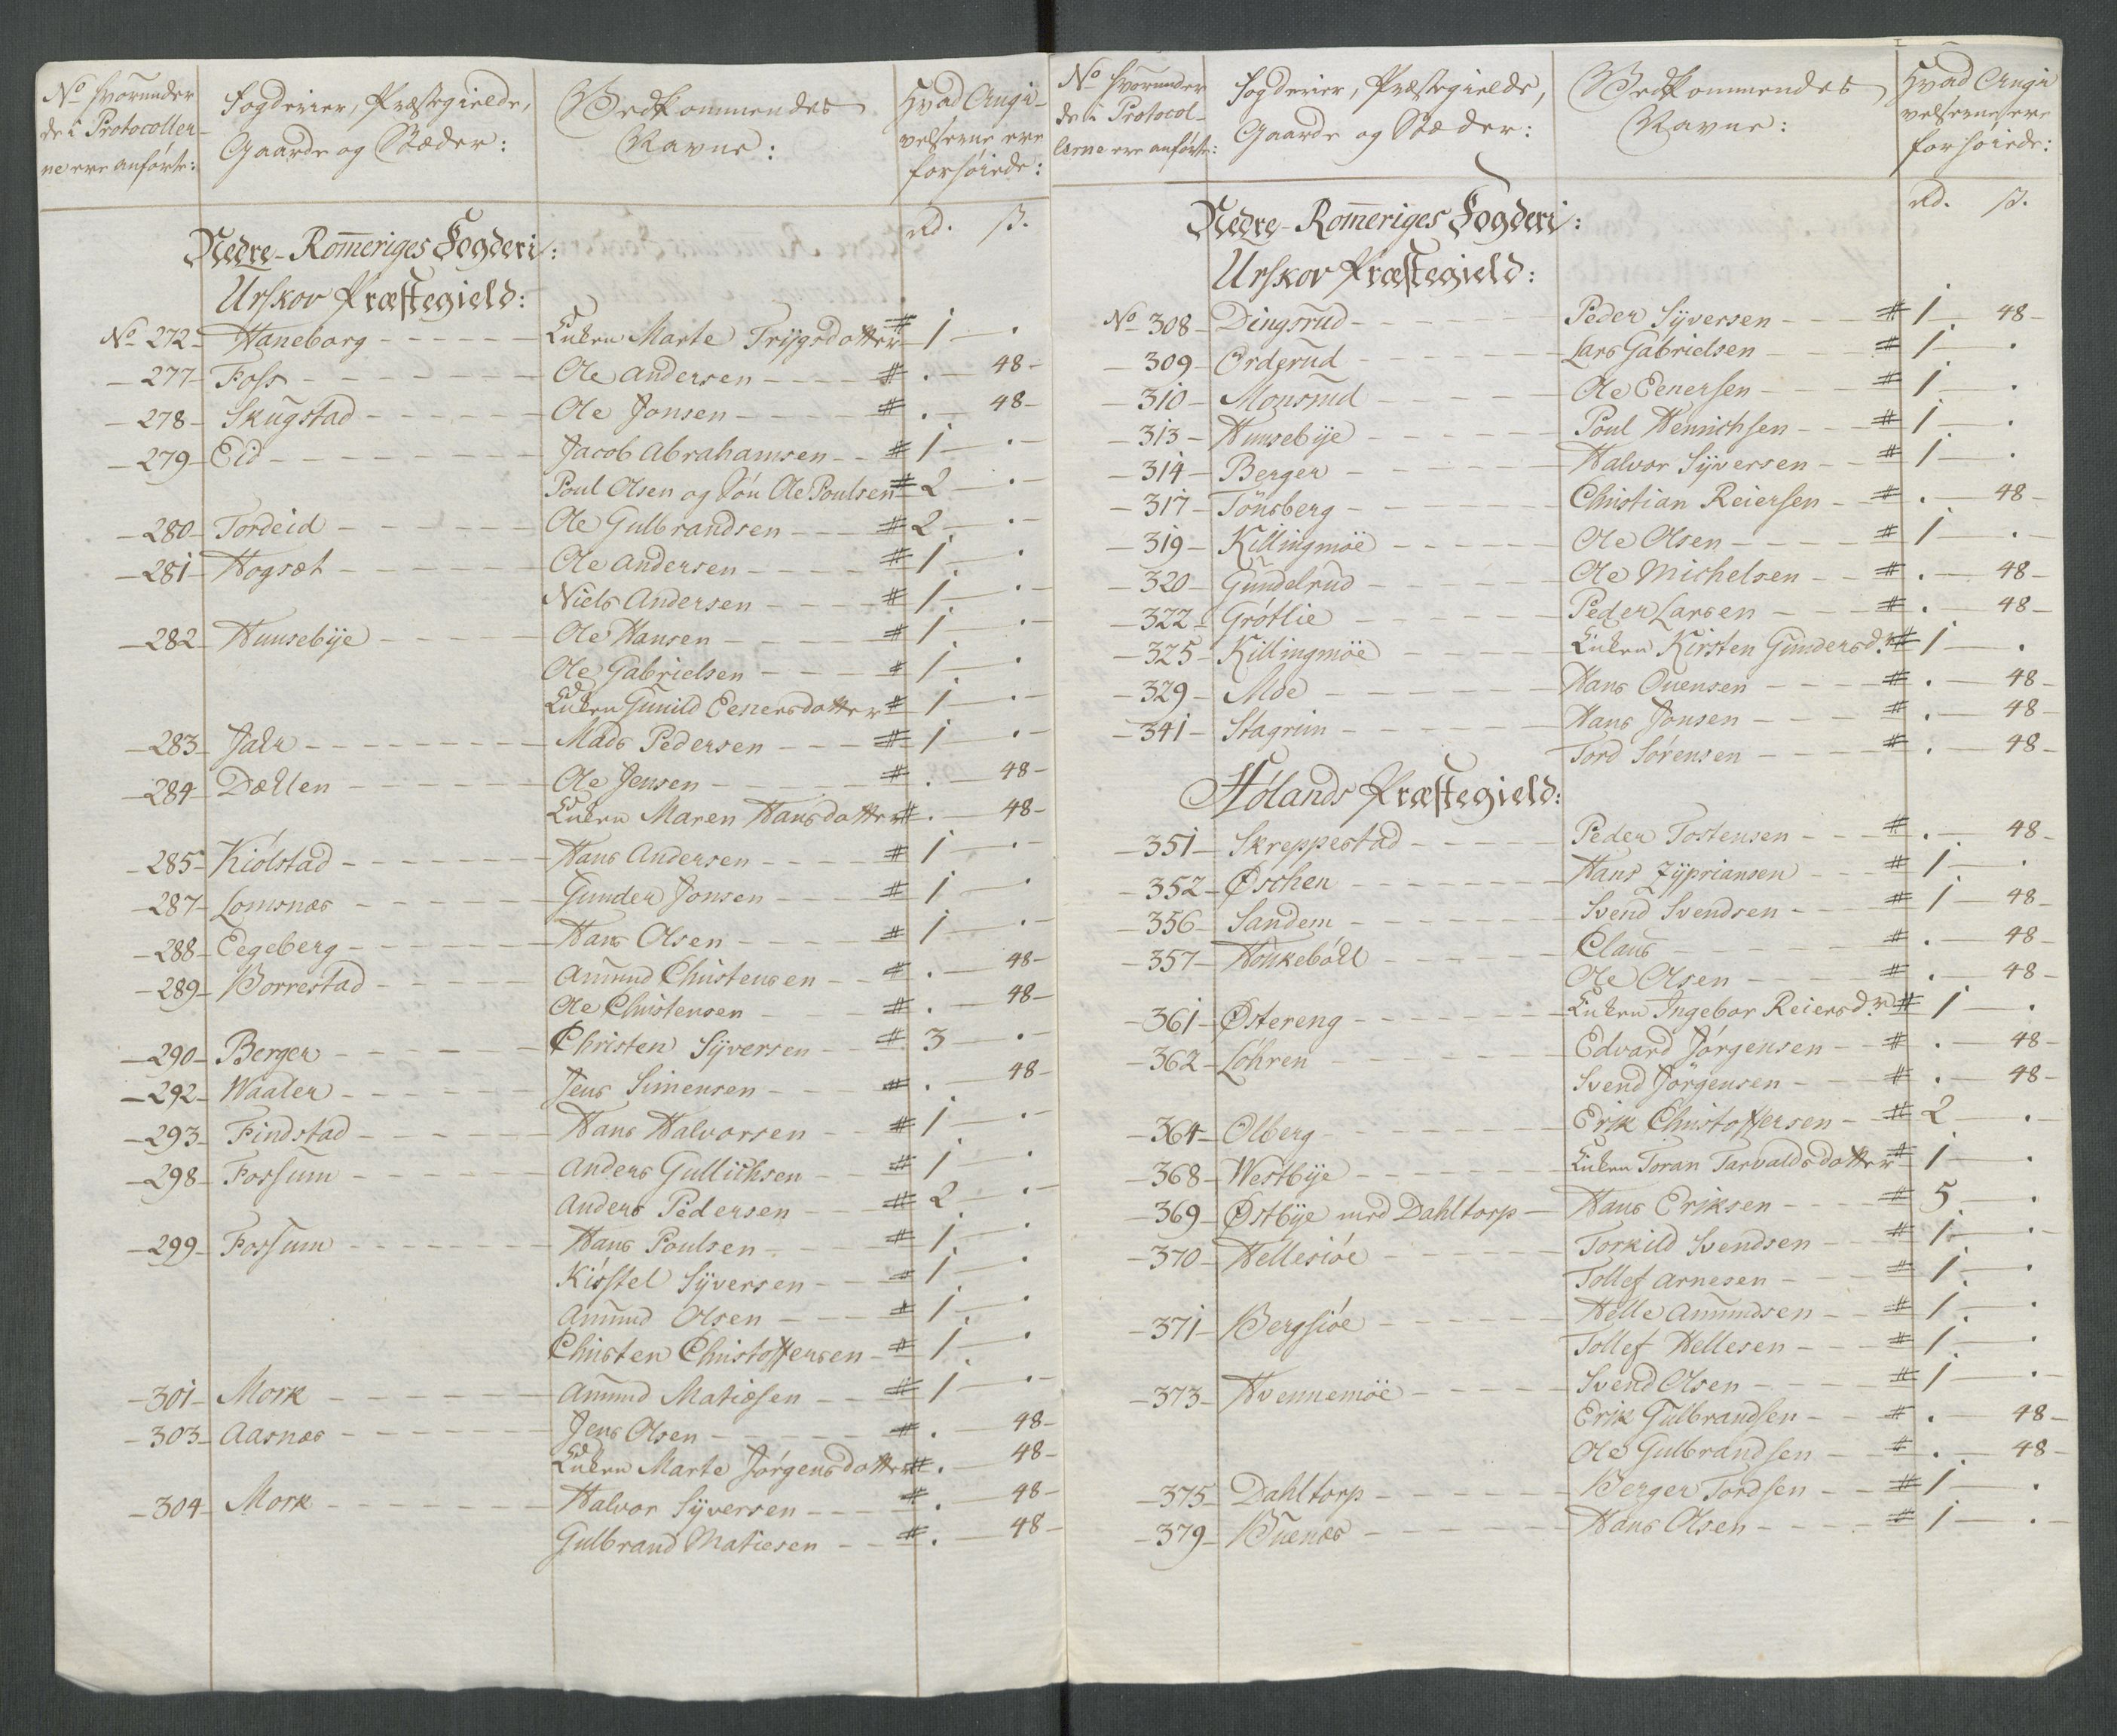 No hvorunder
de i Protocoller-
ne ere anførte:
Fogderier, Præstegielde,
Gaarde og Stæder:
Vedkommendes
Navne:
Hvad Angi-
velserne ere
forhøiede:
Rd. ß.
Nedre-Rom̄eriges Fogderi:
Urskov Præstegield:
No 272 Haneborg - Enken Marte Trÿgsdotter # 1 - .
277 Foss - Ole Andersen - # . - 48
278 Skugstad - Ole Jonsen - # . - 48
279 Eid - Jacob Abrahamsen - # 1 - .
Poul Olsen og Søn Ole Poulsen # 2 - .
280 Tordeid - Ole Gulbrandsen - # 2 - .
281 Hogsæt - Ole Andersen - # 1 - .
Niels Andersen - # 1 - .
282 Huusebÿe - Ole Hansen - # 1 - .
Ole Gabrielsen - # 1 - .
Enken Gunild Eenersdotter # 1 - .
283 Jahr - Mads Pedersen - # 1 - .
284 Dællen - Ole Jensen - # . - 48
Enken Maren Hansdotter # . - 48
285 Kiölstad - Hans Andersen - # 1 - .
287 Lomsnæs - Gunder Jonsen - # 1 - .
288 Eegeberg - Hans Olsen - # 1 - .
289 Borrestad - Amund Christensen - # . - 48
Ole Christensen - # . - 48
290 Berger - Christen Sÿversen - # 3 - .
292 Waaler - Jens Simensen - # . - 48
293 Findstad - Hans Halvorsen - # 1 - .
298 Fossum - Anders Gullichsen - # 1 - .
Anders Pedersen - # 2 - .
299 Fossum - Hans Poulsen - # 1 - .
Kiøstel Sÿversen - # 1 - .
Amund Olsen - # 1 - .
Christen Christoffersen - # 1 - .
301 Mork - Amund Matiesen - # 1 - .
303 Aasnæs - Jens Olsen - # . - 48
Enken Marte Jörgensdotter # . - 48
304 Mork - Halvor Sÿversen - # . - 48
Gulbrand Matiesen - # . - 48
No hvorunder
de i Protocol-
lerne ere anførte:
Fogderier, Præstegielde,
Gaarde og Stæder:
Vedkommendes
Navne:
Hvad Angi
velserne ere
forhøiede:
Rd. ß.
Nedre-Rom̄eriges Fogderi:
Urskov Præstegield:
No 308 Dingsrud - Peder Sÿversen - # 1 - 48
309 Orderud - Lars Gabrielsen - # 1 - .
310 Monsrud - Ole Eenersen - # 1 - .
313 Huusebÿe - Poul Henrichsen - # 1 - .
314 Berger - Halvor Sÿversen - # 1 - .
317 Tönsberg - Christian Reiersen - # . - 48
319 Killingmöe - Ole Olsen - # 1 - .
320 Gundelrud - Ole Michelsen - # . - 48
322 Grötlie - Peder Larsen - # . - 48
325 Killingmöe - Enken Kirsten Gundersd:r # 1 - .
329 Moe - Hans Ouensen - # . - 48
341 Stagrim - Hans Jonsen - # . - 48
Tord Sörensen - # . - 48
Hölands Præstegield:
351 Skreppestad - Peder Tostensen - # . - 48
352 Øschen - Hans Zÿpriansen - # 1 - .
356 Sandem - Svend Svendsen - # 1 - 48
357 Houkeböll - Claus - # . - 48
Ole Olsen - # . - 48
361 Östereng - Enken Ingebor Reiersd:r # 1 - .
362 Löhren - Edvard Jörgensen - # . - 48
Svend Jörgensen - # . - 48
364 Olberg - Erik Christoffersen - # 2 - .
368 Westbÿe - Enken Toran Tarvaldsdotter # 1 - .
369 Østbÿe med Dahltorp - Hans Eriksen - # 5 - .
370 Hellesiöe - Torkild Svendsen - # 1 - .
Tollef Arnesen - # 1 - .
371 Bergsiöe - Helle Amundsen - # 1 - .
Tollef Hellesen - # 1 - .
373 Hvennemöe - Svend Olsen - # 1 - .
Erik Gulbrandsen - # . - 48
Ole Gulbrandsen - # . - 48
375 Dahltorp - Berger Tordsen - # 1 - .
379 Buenæs - Hans Olsen - # 1 - .